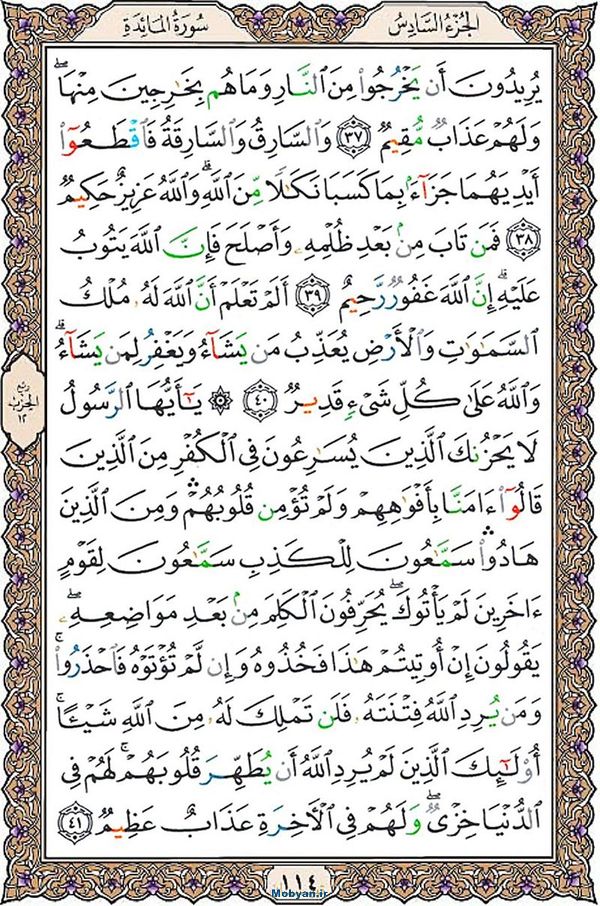 الجُزْءُ السَّادِسُ
سُورَةُ المَائِدَةِ
يُرِيدُونَ أَن يَخْرُجُوا۟ مِنَ ٱلنَّارِ وَمَا هُم بِخَٰرِجِينَ مِنْهَا ۖ
وَلَهُمْ عَذَابٌ مُّقِيمٌ ٣٧ وَٱلسَّارِقُ وَٱلسَّارِقَةُ فَٱقْطَعُوٓا۟
أَيْدِيَهُمَا جَزَآءًۢ بِمَا كَسَبَا نَكَٰلًا مِّنَ ٱللَّهِ ۗ وَٱللَّهُ عَزِيزٌ حَكِيمٌ
٣٨ فَمَن تَابَ مِنۢ بَعْدِ ظُلْمِهِۦ وَأَصْلَحَ فَإِنَّ ٱللَّهَ يَتُوبُ
عَلَيْهِ ۗ إِنَّ ٱللَّهَ غَفُورٌ رَّحِيمٌ ٣٩ أَلَمْ تَعْلَمْ أَنَّ ٱللَّهَ لَهُۥ مُلْكُ
ٱلسَّمَٰوَٰتِ وَٱلْأَرْضِ يُعَذِّبُ مَن يَشَآءُ وَيَغْفِرُ لِمَن يَشَآءُ ۗ
وَٱللَّهُ عَلَىٰ كُلِّ شَىْءٍ قَدِيرٌ ٤٠ ۞ يَٰٓأَيُّهَا ٱلرَّسُولُ
لَا يَحْزُنكَ ٱلَّذِينَ يُسَٰرِعُونَ فِى ٱلْكُفْرِ مِنَ ٱلَّذِينَ
قَالُوٓا۟ ءَامَنَّا بِأَفْوَٰهِهِمْ وَلَمْ تُؤْمِن قُلُوبُهُمْ ۛ وَمِنَ ٱلَّذِينَ
هَادُوا۟ ۛ سَمَّٰعُونَ لِلْكَذِبِ سَمَّٰعُونَ لِقَوْمٍ
ءَاخَرِينَ لَمْ يَأْتُوكَ ۖ يُحَرِّفُونَ ٱلْكَلِمَ مِنۢ بَعْدِ مَوَاضِعِهِۦ ۖ
يَقُولُونَ إِنْ أُوتِيتُمْ هَٰذَا فَخُذُوهُ وَإِن لَّمْ تُؤْتَوْهُ فَٱحْذَرُوا۟ ۚ
وَمَن يُرِدِ ٱللَّهُ فِتْنَتَهُۥ فَلَن تَمْلِكَ لَهُۥ مِنَ ٱللَّهِ شَيْـًٔا ۚ
أُو۟لَٰٓئِكَ ٱلَّذِينَ لَمْ يُرِدِ ٱللَّهُ أَن يُطَهِّرَ قُلُوبَهُمْ ۚ لَهُمْ فِى
ٱلدُّنْيَا خِزْىٌ ۖ وَلَهُمْ فِى ٱلْءَاخِرَةِ عَذَابٌ عَظِيمٌ ٤١
ربع
الحزب
١٢
١١٤
Mobyan.ir